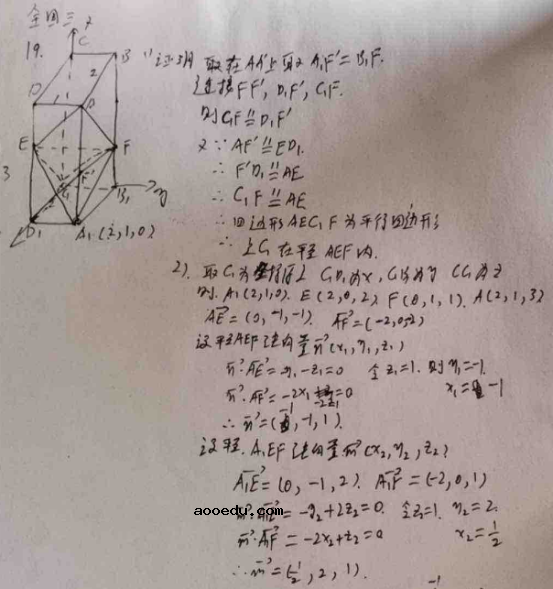 全国三
19.
z
C
B
2
D
A
E
F
F'
3
C₁
B₁
y
D₁
A₁(2,1,0)
1) 证明 取在AA'上取A₁F'=B₁F.
连接FF', D₁F', C₁F.
则C₁F∥=D₁F'
又∵AF'∥=ED₁
∴F'D₁∥=AE
∴C₁F∥=AE
∴四边形AEC₁F为平行四边形
∴点C₁在平面AEF内.
2). 取C₁为坐标原点 C₁D₁为x, C₁B₁为y CC₁为z
则. A₁(2,1,0). E(2,0,2) F(0,1,1). A(2,1,3)
AE=(0,-1,-1). AF=(-2,0,-2)
设平面AEF法向量n(x₁,y₁,z₁)
n·AE=-y₁-z₁=0 令z₁=1. 则y₁=-1.
n·AF=-2x₁-2z₁=0 x₁=-1
∴n=(-1,-1,1).
设平面A₁EF法向量m(x₂,y₂,z₂)
A₁E=(0,-1,2). A₁F=(-2,0,1)
m·A₁E=-y₂+2z₂=0. 令z₂=1. y₂=2.
m·A₁F=-2x₂+z₂=0 x₂=1/2
∴m=(1/2,2,1).
aooedu.com